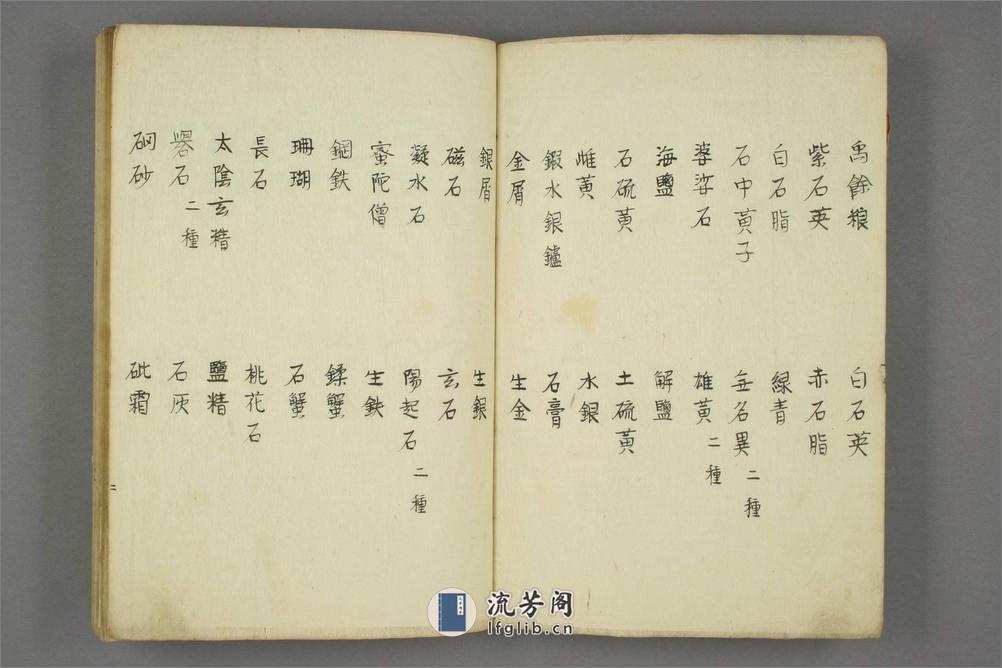 禹餘粮　白石英
紫石英　赤石脂
白石脂　緑青
石中黃子　無名異二種
婆娑石　雄黃二種
海鹽　解鹽
石硫黃　土硫黃
雌黃　水銀
鍜水銀鑪　石膏
金屑　生金
銀屑　生銀
磁石　玄石
凝水石　陽起石二種
蜜陀僧　生鉄
鋼鉄　鍒蟹
珊瑚　石蟹
長石　桃花石
太陰玄精　鹽精
礜石二種　石灰
硇砂　砒霜
二
流芳阁
lfglib.cn